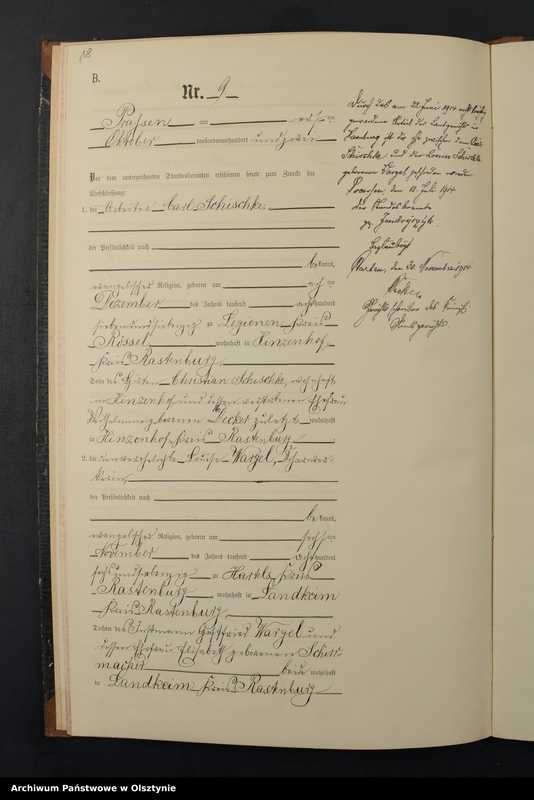 18
B.
Nr. 9
Prassen am
Oktober tausendneunhundert und zwei
Vor dem unterzeichneten Standesbeamten erschienen heute zum Zwecke der
Eheschließung:
1. der Arbeiter Carl Schischke
der Persönlichkeit nach
bekannt,
evangelischer Religion, geboren am
Dezember des Jahres tausend achthundert
siebenundsiebenzig zu Legienen Kreis
Rössel wohnhaft in Hinzenhof
Kreis Rastenburg
Sohn des Hirten Christian Schischke, wohnhaft
in Hinzenhof und dessen verstorbenen Ehefrau
Wilhelmine geborenen Decker zuletzt wohnhaft
in Hinzenhof Kreis Rastenburg
2. die unverehelichte Louise Wargel,
der Persönlichkeit nach
bekannt,
evangelischer Religion, geboren am
November des Jahres tausend achthundert
sechsundsiebenzig zu Kreis
Rastenburg wohnhaft in Landkeim
Kreis Rastenburg
Tochter des Instmann Gottfried Wargel und
dessen Ehefrau Elisabeth geborenen Schirr-
macher beide wohnhaft
in Landkeim Kreis Rastenburg
Durch das am 22. Juni 1914
Urteil des Landgerichts in
ist die Ehe zwischen dem Carl
Schischke und der Louise Schischke
geborenen Wargel geschieden worden
Prassen, den 13. Juli 1914
Der Standesbeamte
gz.
Beglaubigt
den 30. November 1914
Gerichtsschreiber des Königl.
Amtsgerichts.
Archiwum Państwowe w Olsztynie